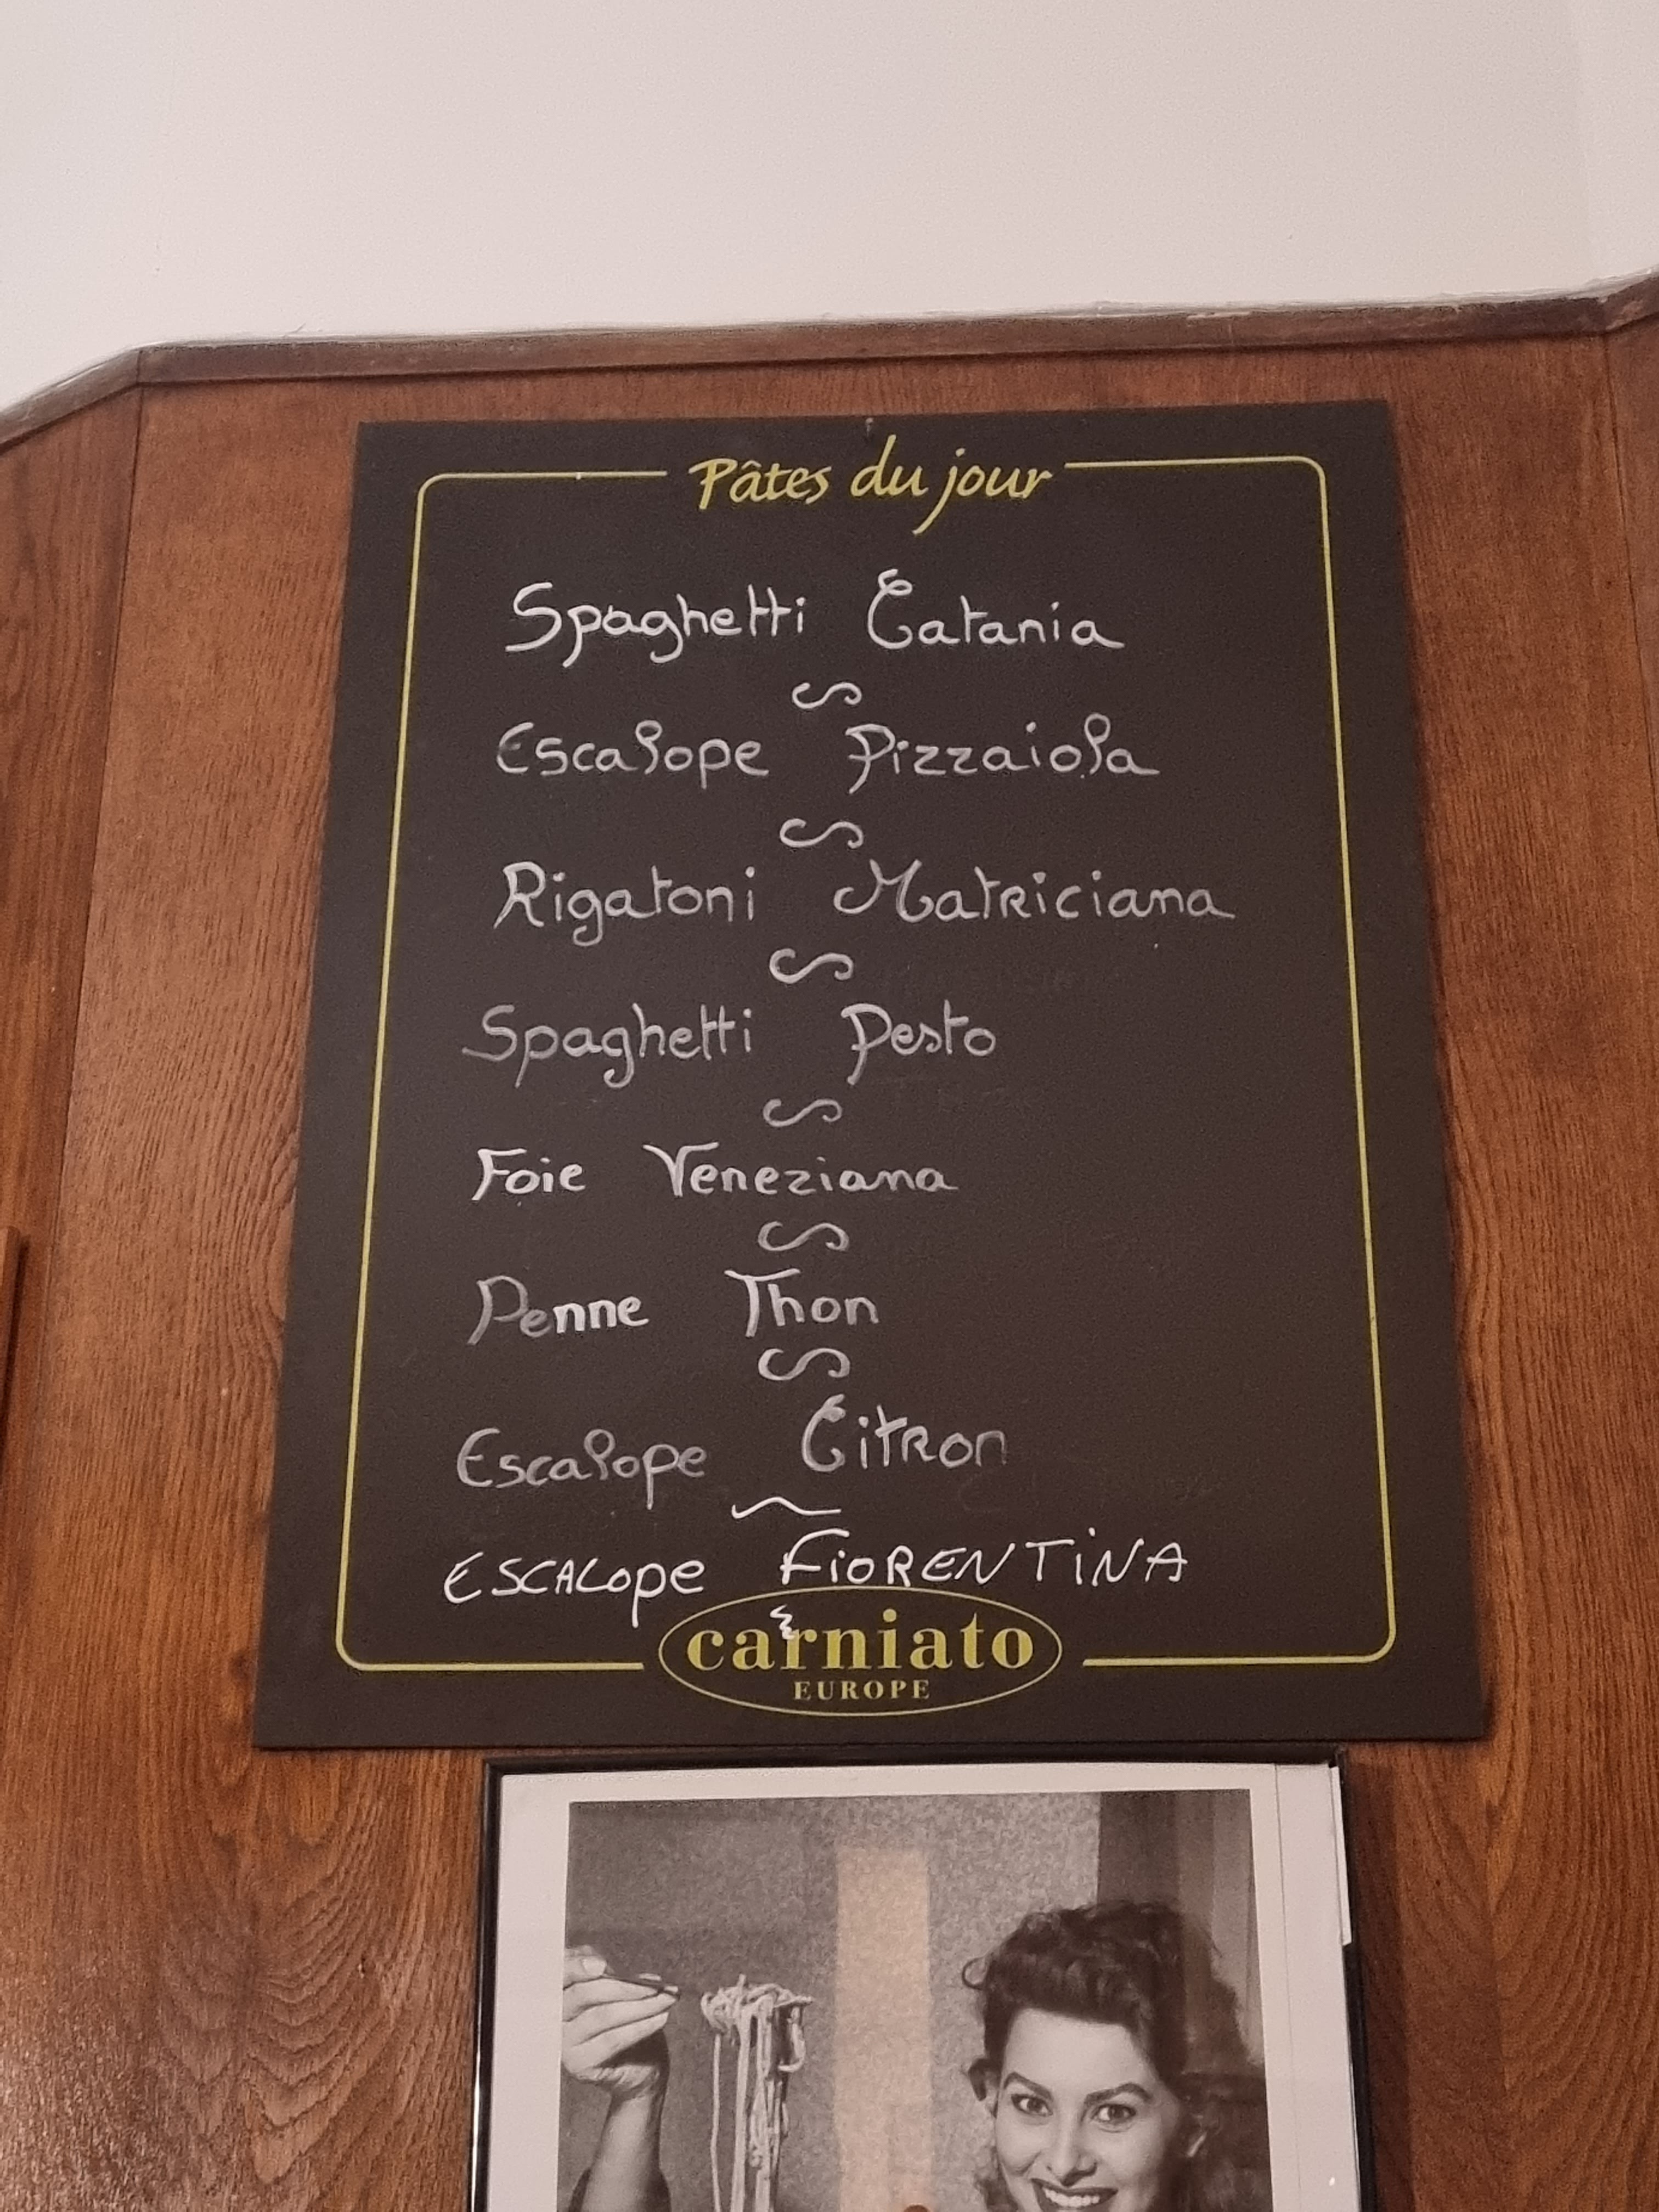 Pâtes du jour
Spaghetti Catania
Escalope Pizzaiola
Rigatoni Matriciana
Spaghetti Pesto
Foie Veneziana
Penne Thon
Escalope Citron
ESCALope FiORENTiNA
carniato
EUROPE